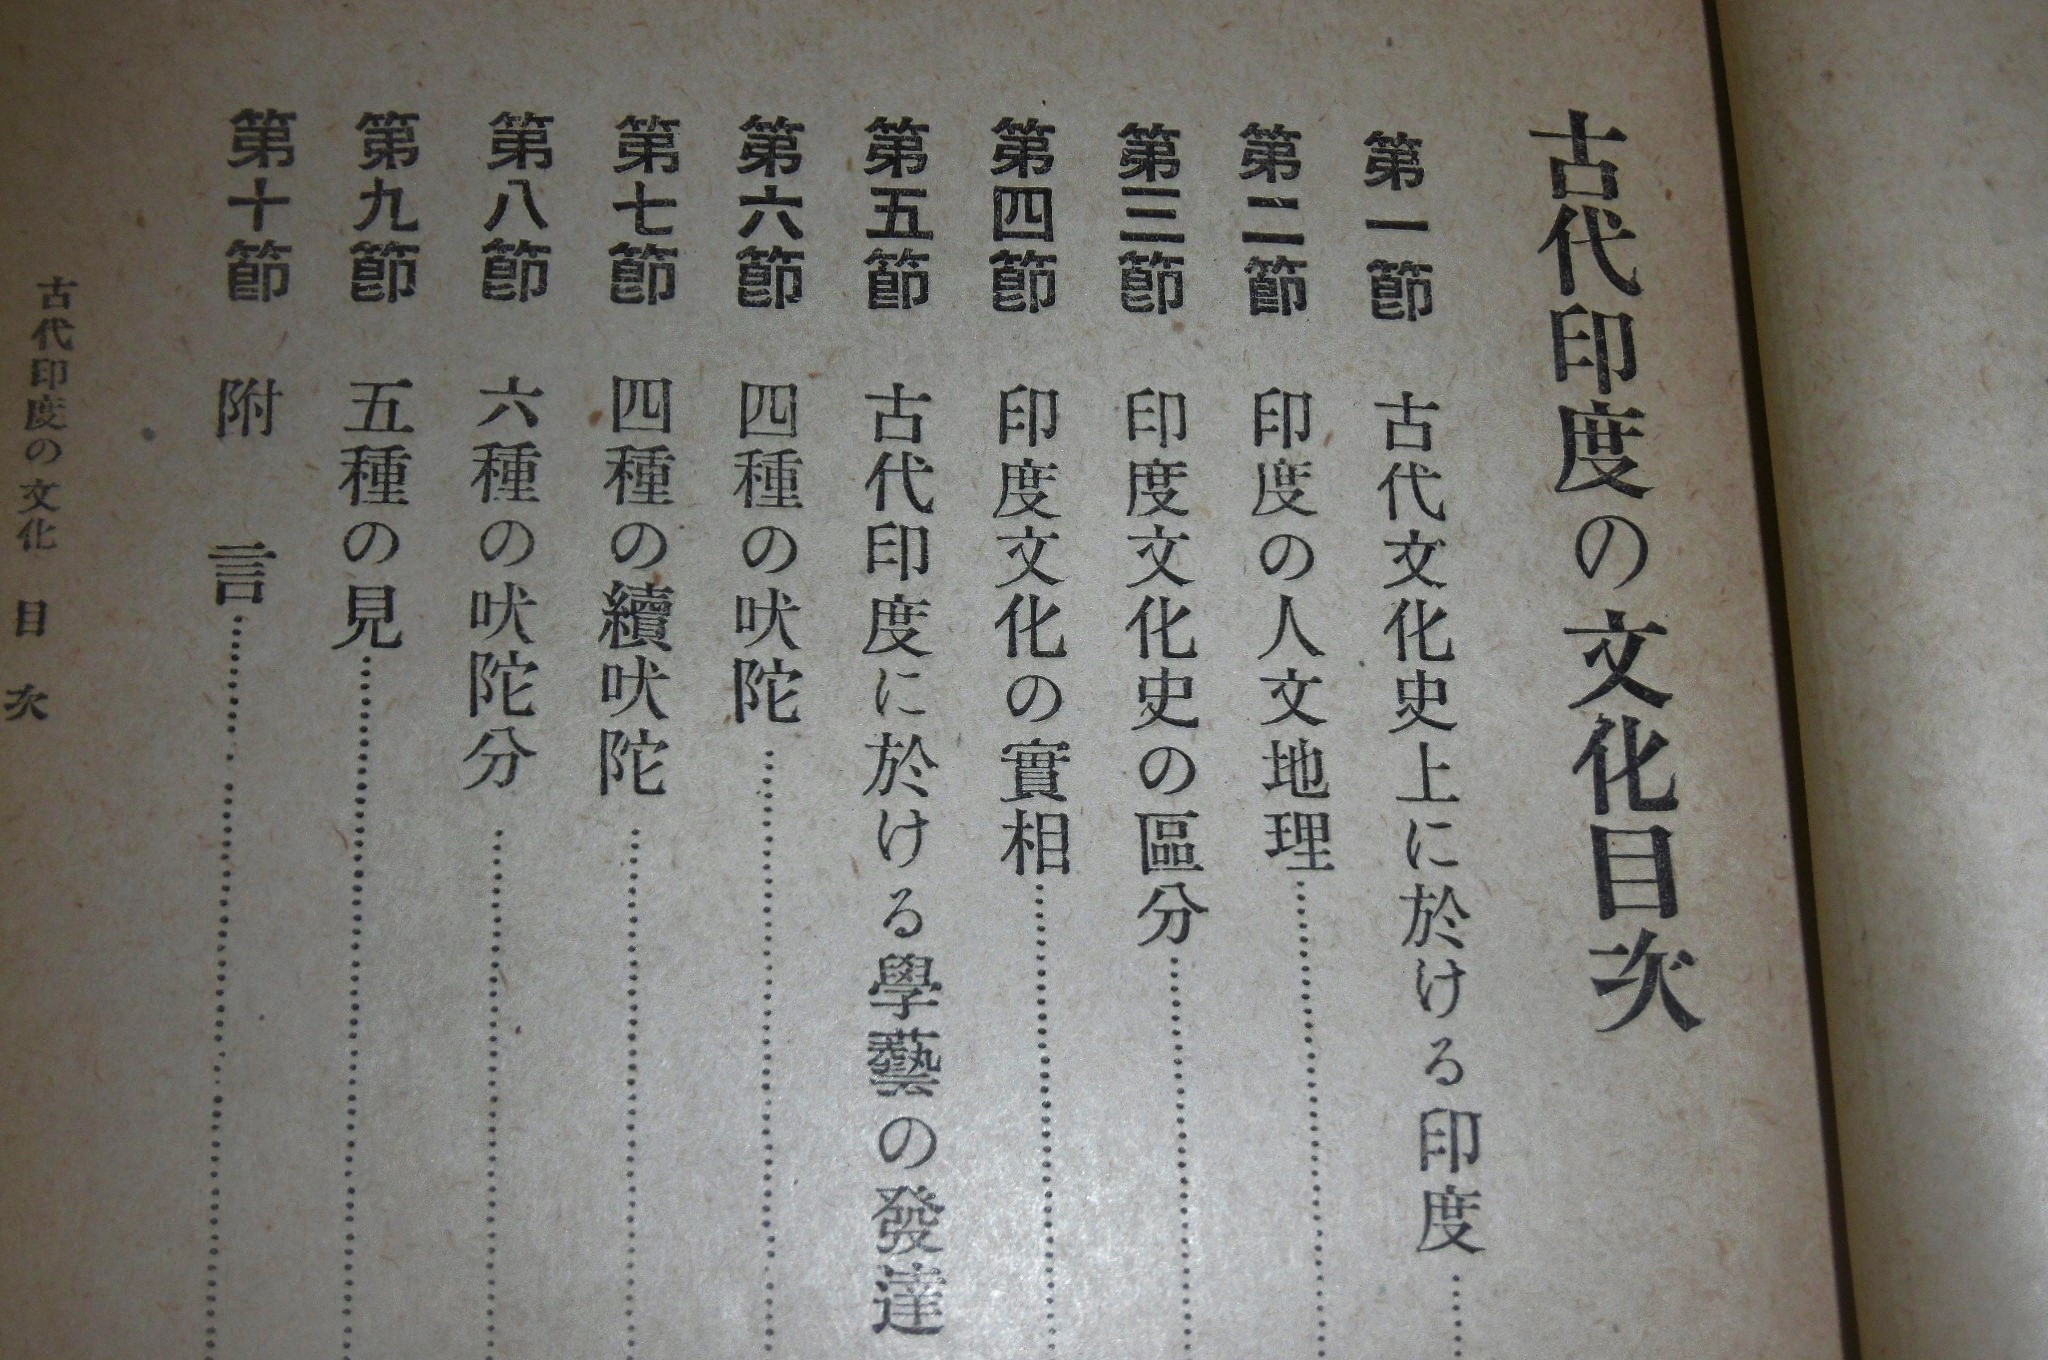 古代印度の文化目次
第一節 古代文化史上に於ける印度
第二節 印度の人文地理
第三節 印度文化史の區分
第四節 印度文化の實相
第五節 古代印度に於ける學藝の發達
第六節 四種の吠陀
第七節 四種の續吠陀
第八節 六種の吠陀分
第九節 五種の見
第十節 附言
古代印度の文化 目次